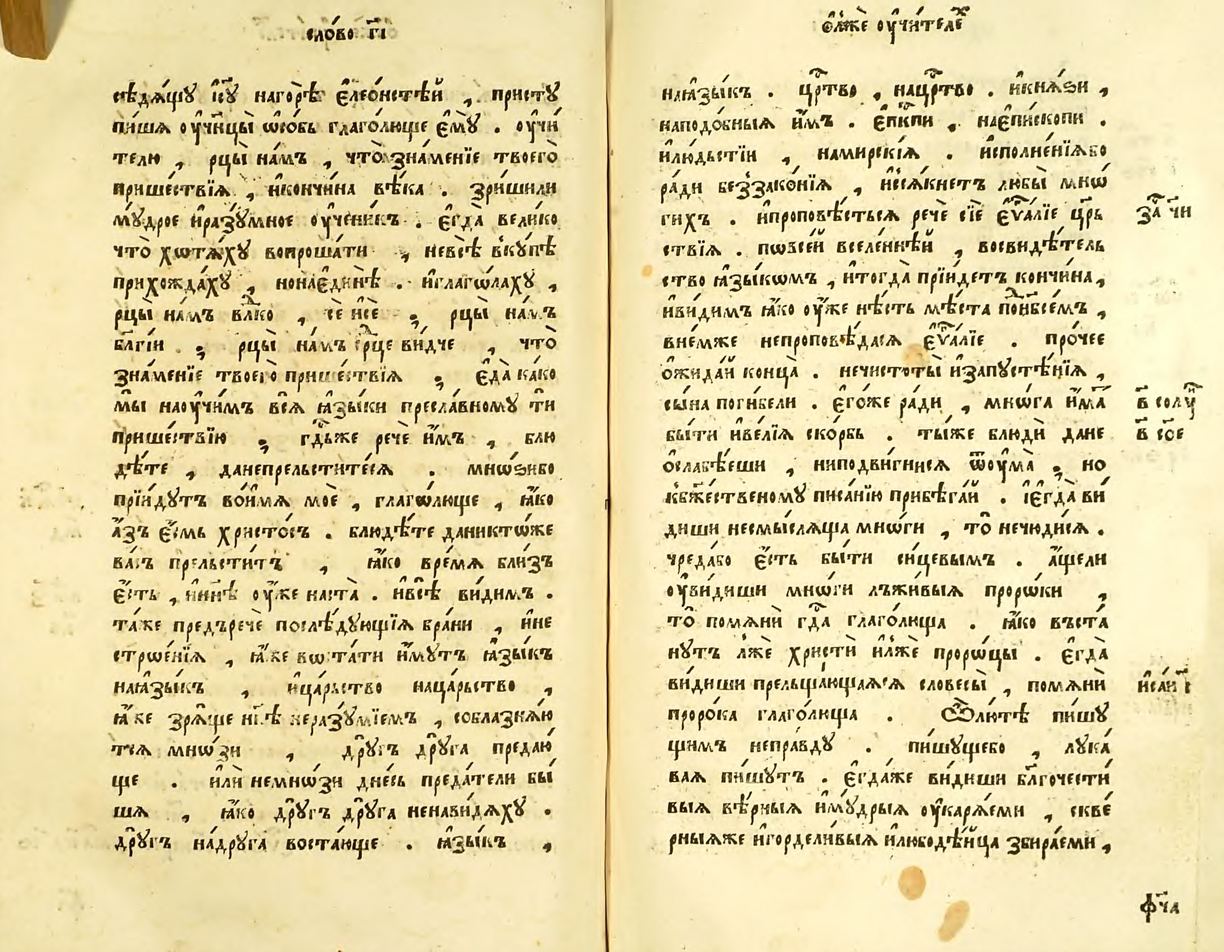 сло́во г҃і
сѣдѧ́щу і҆с҃у нагорѣ̀ є҆леѡ́нстѣй , присту
пи́шѧ ѹ҆чн҃цы̀ ѡ҆со́бь глаго́люще є҆мꙋ̀ . ѹ҆чи́
телю , рцы̀ на́мъ , что̀ зна́менїе твоего̀
прише́ствїѧ , и҆кончи́на вѣ́ка . зри́шили
мꙋ́дрое и҆разꙋ́мное ѹ҆чени́къ . є҆гда̀ вели́ко
что̀ хотѧ́хꙋ вопроша́ти , невсѣ̀ вкꙋ́пѣ
прихожда́хꙋ , нонає҆ди́нѣ . и҆глаго́лахꙋ ,
рцы̀ на́мъ влⷣко , се и҆сѐ ; рцы̀ на́мъ
бл҃гі́и ; рцы̀ на́мъ срⷣце ви́дче , что̀
зна́менїе твоего̀ прише́ствїѧ ; є҆да̀ ка́ко
мы̀ наѹ҆чи́мъ всѧ̀ ꙗ҆зы́ки пресла́вномꙋ тѝ
прише́ствїю ; гдⷭ҇ьже речѐ и҆̀мъ , блю
дѣ́те , данепрельстите́сѧ . мно́ѕибо
прїи́дꙋтъ во́и҆мѧ моѐ , глаго́люще , ꙗ҆́ко
а҆́зъ є҆́смь христо́съ . блюдѣ́те даникто́же
ва́съ прельсти́тъ , ꙗ҆́ко вре́мѧ бли́зъ
є҆́сть , ин҃нѣ ѹ҆жѐ наста̀ . и҆всѣ̀ ви́димъ .
та́же предъречѐ послѣ́дꙋющїѧ бра́ни , и҆не
строє́нїѧ , ꙗ҆́же воста́ти и҆́мꙋтъ ꙗ҆зы́къ
наꙗ҆зы́къ , и҆ца́рьство наца́рьство ,
ꙗ҆́же зрѧ́ще нн҃ѣ неразꙋ́мїемъ , соблазнѧ́ю
тсѧ мно́зи , дрꙋ́гъ дрꙋ́га предаю́
ще . и҆лѝ немно́зи дне́сь преда́тели бы́
шѧ , ꙗ҆́ко дрꙋ́гъ дрꙋ́га ненави́дѧхꙋ .
дрꙋ́гъ на́дрꙋга востаю́ще . ꙗ҆зы́къ ,
блж҃е ѹ҆чи́телеⷨ
наꙗ҆зы́къ . црⷭ҇тво , нацрⷭ҇тво . и҆кнѧ́ѕи ,
наподо́бныѧ и҆̀мъ . є҆пⷭ҇кпи , нає҆пи́скопи .
и҆лю́дьстїи , намирскі́ѧ . и҆сполне́нїѧбо
ра́ди беззако́нїѧ , и҆сѧ́кнетъ любы̀ мно́
гихъ . и҆проповѣ́стьсѧ речѐ сїѐ є҆ѵⷢ҇алїе црⷭ҇ь
ствїѧ . повсе́й вселе́ннѣй , восвидѣ́тель
ство ꙗ҆зы́комъ , и҆тогда̀ прїи́детъ кончи́на ,
и҆ви́димъ ꙗ҆́ко ѹ҆жѐ нѣ́сть мѣ́ста поⷣнб҃се́мъ ,
вне́мже непроповѣ́дасѧ є҆ѵⷢ҇алїе . про́чее
ѡ҆жида́й конца̀ . нечистоты̀ и҆запꙋстѣ́нїѧ ,
сы́на поги́бели . є҆го́же ра́ди , мно́га и҆́маⷨ
бы́ти и҆ве́лїѧ ско́рбь . ты́же блюдѝ дане
ѡ҆слабѣ́еши , ниподви́гнисѧ ѿѹ҆ма̀ , но
кбж҃е́ственомꙋ писа́нїю прибѣга́й . і҆є҆гда̀ ви́
диши несмы́слѧща мно́ги , то̀ нечюди́сѧ .
чреда́бо є҆́сть бы́ти сицевы́мъ . а҆́щели
ѹ҆ви́диши мно́ги лъжи́выѧ проро́ки ,
то̀ помѧнѝ гдⷭ҇а глаго́люща . ꙗ҆́ко въста́
нꙋтъ лжѐ христѝ и҆лжѐ проро́цы . є҆гда̀
ви́диши прельща́ющаѧсѧ словесы̀ , помѧнѝ
проро́ка глаго́люща . Ѽлютѣ̀ пи́шꙋ
щимъ непра́вдꙋ . пи́шꙋщебо , лꙋка́
ваѧ пи́шꙋтъ . є҆гда́же ви́диши бл҃гочести́
выѧ вѣ́рныѧ и҆мꙋ́дрыѧ ѹ҆карѧ́еми , скве́
рныѧже и҆горделі́выѧ и҆любодѣ́йца збира́еми ,
за̀ ч҃и
в҃ солꙋⷩ
в҃ сѻ҃е
и҆са́и г҃і
ф҃ча